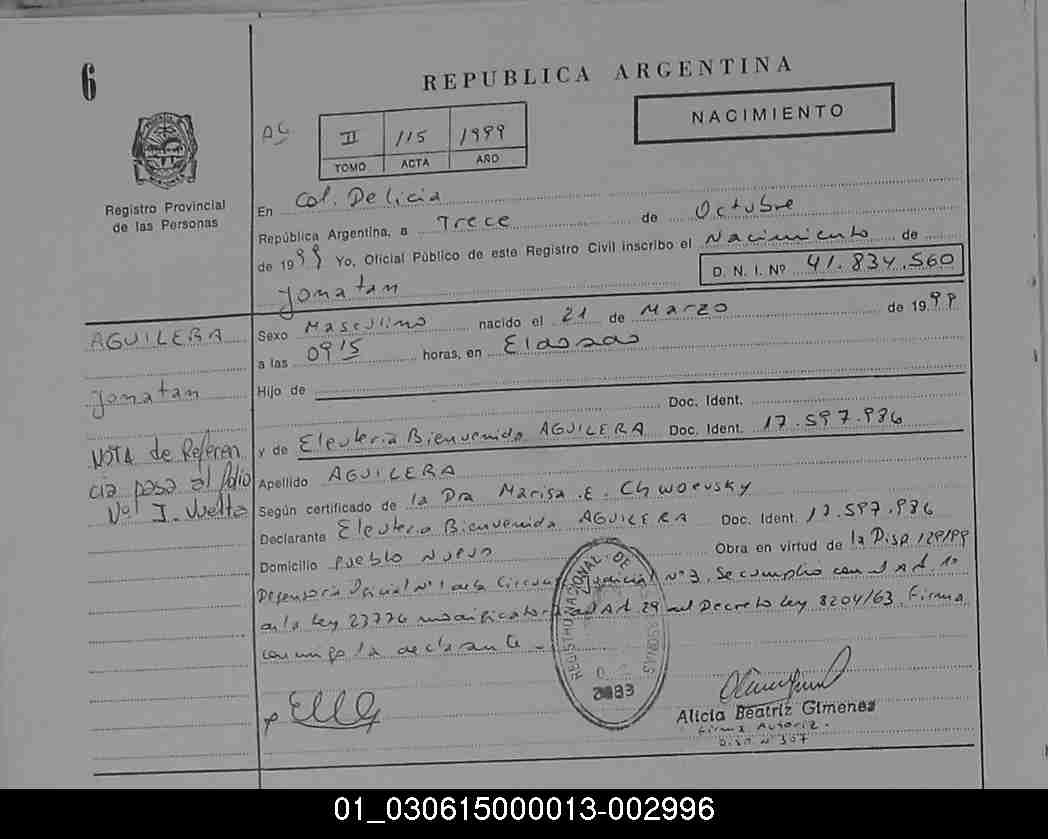 6
REPUBLICA ARGENTINA
NACIMIENTO
II 115 1999
TOMO ACTA AÑO
Registro Provincial
de las Personas
En Col. Delicia
República Argentina, a Trece de Octubre
de 1999 Yo, Oficial Público de este Registro Civil inscribo el Nacimiento de
Jonatan D. N. I. Nº 41.834.560
AGUILERA
Jonatan
NOTA de Referen
cia pasa al folio
Nº1 I. Vuelta
Sexo Masculino nacido el 21 de Marzo de 1999
a las 0915 horas, en Eldorado
Hijo de
Doc. Ident.
y de Eleuteria Bienvenida AGUILERA Doc. Ident. 17.597.936
Apellido AGUILERA
Según certificado de la Dra Marisa E. Chwoevsky
Declarante Eleuteria Bienvenida AGUILERA Doc. Ident. 17.597.936
Domicilio Pueblo Nuevo Obra en virtud de la Disp. 129/99
Defensoria Oficial Nº1 de la Circuns Judicial Nº3. Se cumplio con el Art. 10
de la Ley 23776 modificatoria del Art 29 del Decreto Ley 8204/63. Firma
conmigo la declarante -
REGISTRO NACIONAL DE LAS PERSONAS
2083
Alicia Beatriz Gimenez
Firma Autoriz.
Disp Nº 307
01_030615000013-002996